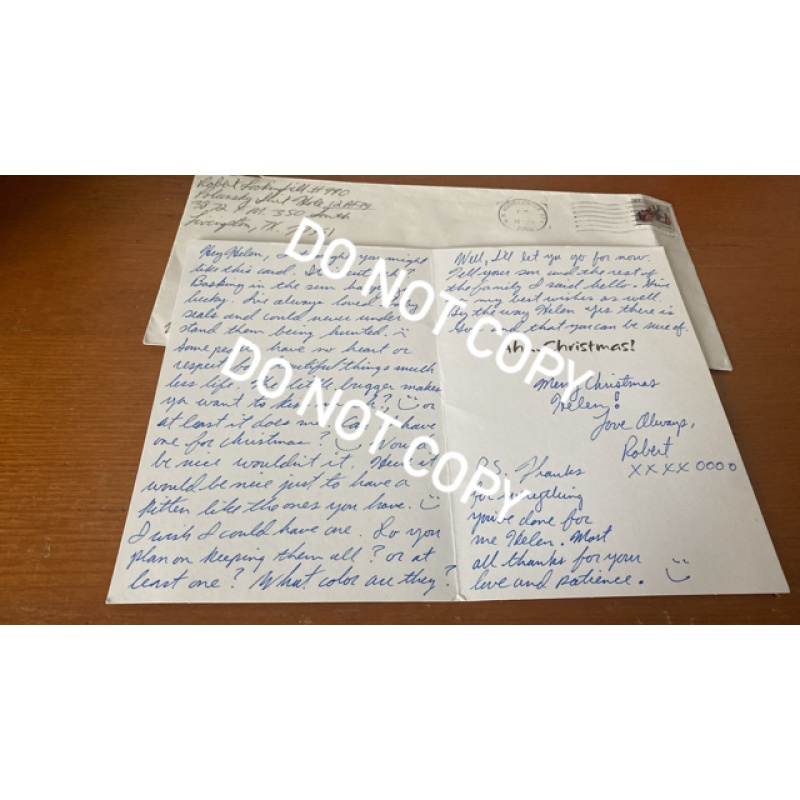 Robert
Polunsky Unit
3872 F.M. 350 South
Livingston, TX.
Hey Helen, I thought you might
like this card. It's cute
Basking in the sun
lucky. I've always loved baby
seals and could never under
stand them being hunted. :(
Some people have no heart or
respect for beautiful things much
less life. The little bugger makes
you want to kiss :) or
at least it does me. Can I have
one for Christmas? :) Would
be nice wouldn't it. Heck it
would be nice just to have a
kitten like the ones you have. :)
I wish I could have one. So you
plan on keeping them all? or at
least one? What color are they?
Well, I'll let you go for now.
Tell your son and the rest of
the family I said hello. Give
em my best wishes as well.
By the way Helen yes there is
God and that you can be sure of.
Ah...Christmas!
Merry Christmas
Helen!
Love Always,
Robert
XXXX0000
P.S. Thanks
for everything
you've done for
me Helen. Most
all thanks for your
love and patience. :)
DO NOT COPY
DO NOT COPY